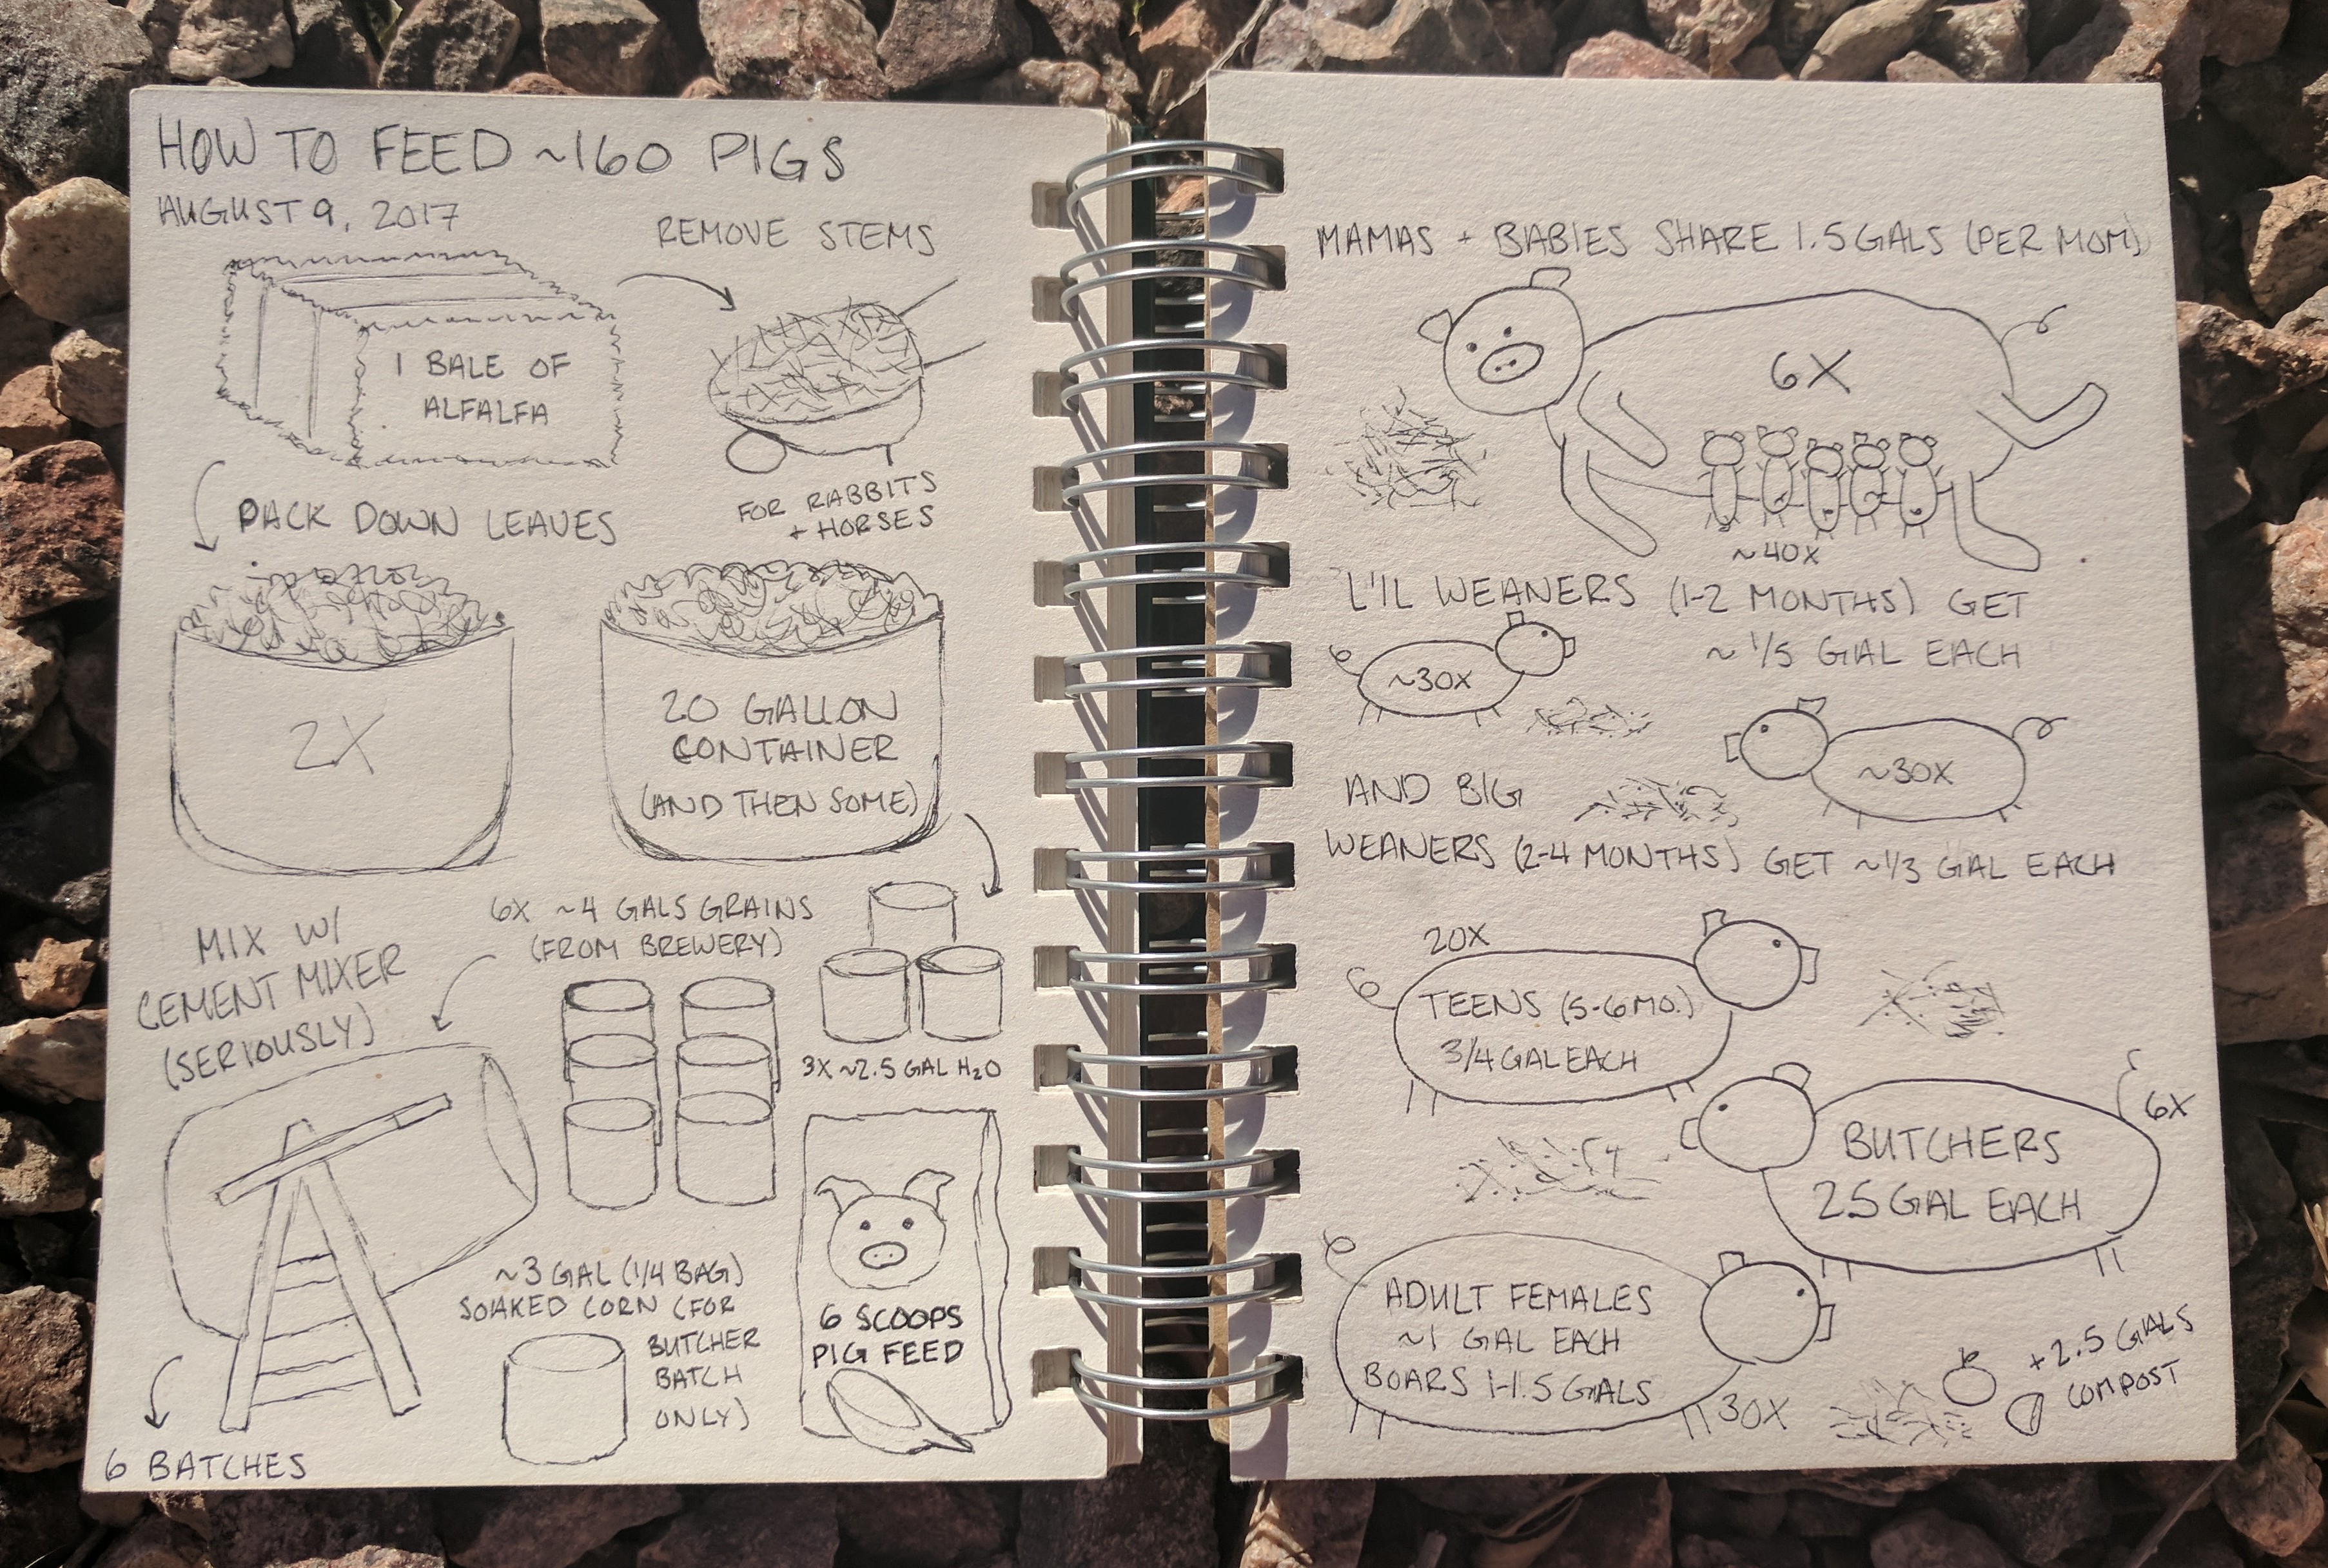 HOW TO FEED ~160 PIGS
AUGUST 9, 2017
REMOVE STEMS
1 BALE OF
ALFALFA
FOR RABBITS
+ HORSES
PACK DOWN LEAVES
2X
20 GALLON
CONTAINER
(AND THEN SOME)
6X ~4 GALS GRAINS
(FROM BREWERY)
3X ~2.5 GAL H₂O
MIX W/
CEMENT MIXER
(SERIOUSLY)
~3 GAL (1/4 BAG)
SOAKED CORN (FOR
BUTCHER
BATCH
ONLY)
6 SCOOPS
PIG FEED
6 BATCHES
MAMAS + BABIES SHARE 1.5 GALS (PER MOM)
6X
~40X
L'IL WEANERS (1-2 MONTHS) GET
~ 1/5 GAL EACH
~30X
~30X
AND BIG
WEANERS (2-4 MONTHS) GET ~1/3 GAL EACH
20X
TEENS (5-6 MO.)
3/4 GAL EACH
6X
BUTCHERS
2.5 GAL EACH
ADULT FEMALES
~1 GAL EACH
BOARS 1-1.5 GALS
30X
+2.5 GALS
COMPOST